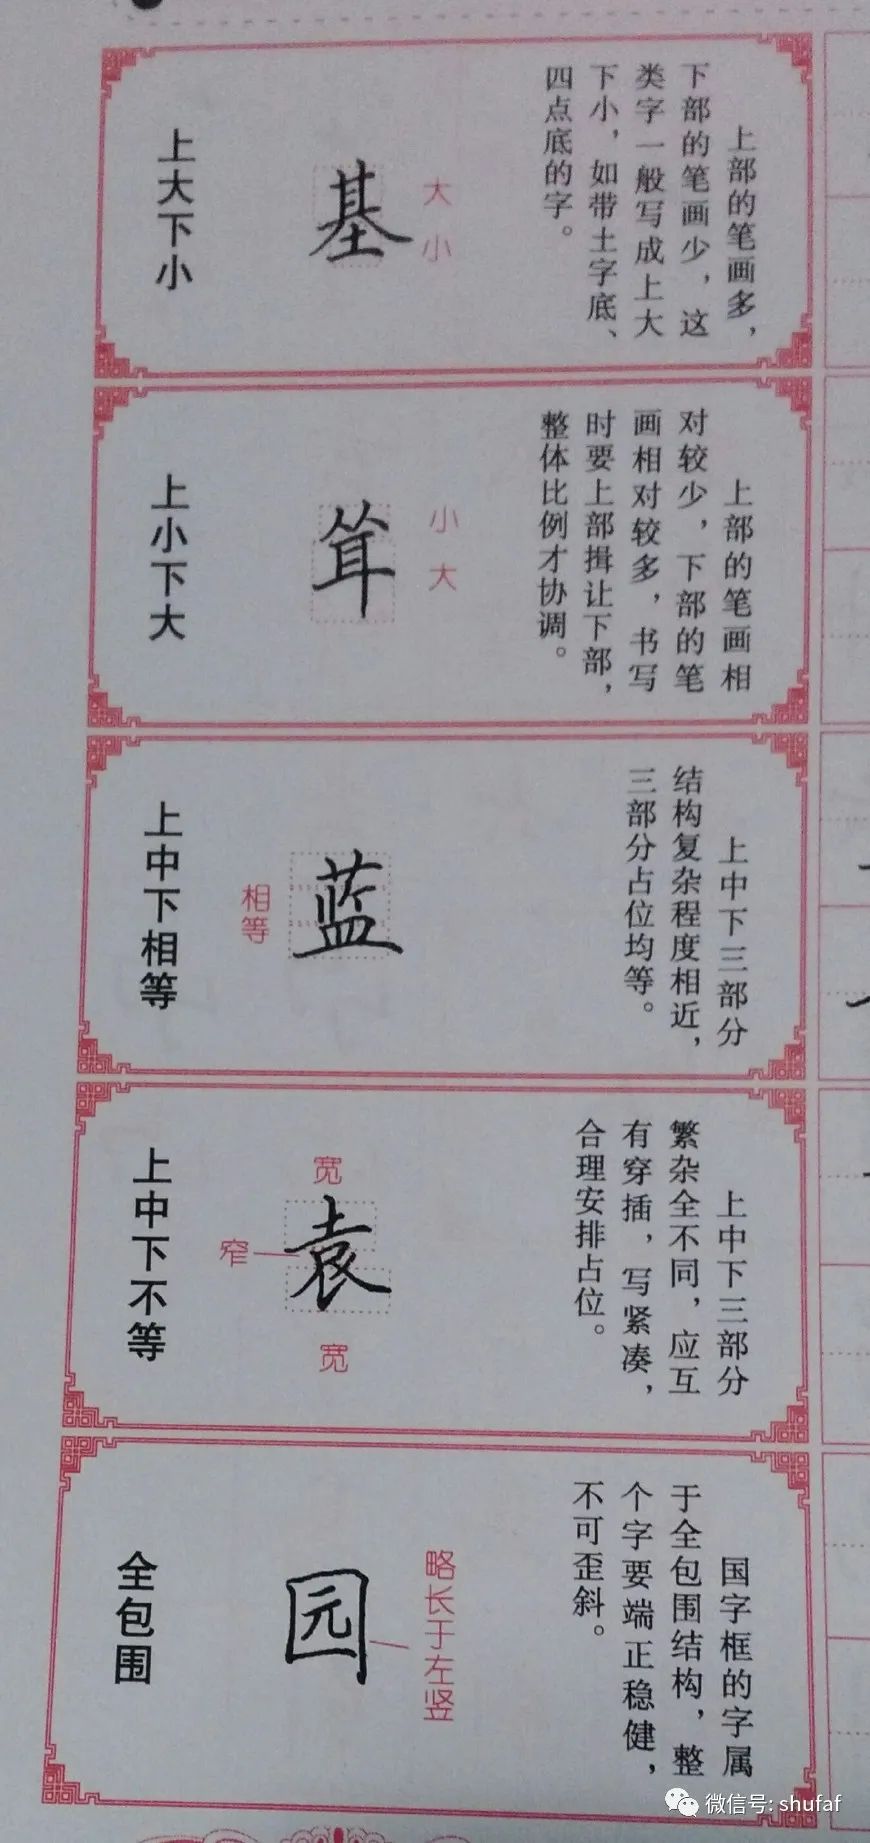 上大下小
基
大
小
上部的笔画多，
下部的笔画少，这
类字一般写成上大
下小，如带土字底、
四点底的字。
上小下大
耸
小
大
上部的笔画相
对较少，下部的笔
画相对较多，书写
时要上部揖让下部，
整体比例才协调。
上中下相等
相等
蓝
上中下三部分
结构复杂程度相近，
三部分占位均等。
上中下不等
宽
窄
袁
宽
上中下三部分
繁杂全不同，应互
有穿插，写紧凑，
合理安排占位。
全包围
园
略长于左竖
国字框的字属
于全包围结构，整
个字要端正稳健，
不可歪斜。
微信号: shufaf